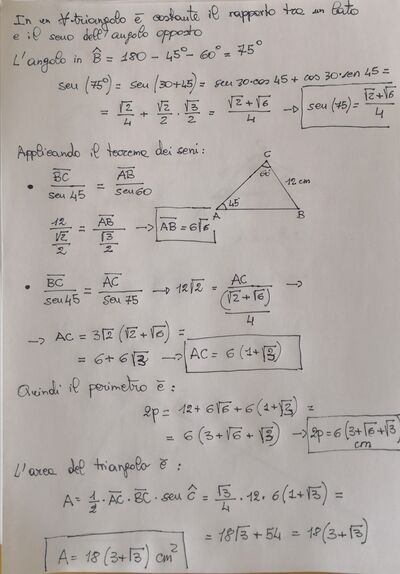 In un ∀ triangolo è costante il rapporto tra un lato
e il seno dell'angolo opposto
L'angolo in B̂ = 180 - 45° - 60° = 75°
sen (75°) = sen (30+45) = sen 30·cos 45 + cos 30·sen 45 =
= √2/4 + √2/2 · √3/2 = (√2+√6)/4 → sen (75) = (√2+√6)/4
Applicando il teorema dei seni:
• BC/sen 45 = AB/sen 60
C
60
12 cm
45
A
B
12/(√2/2) = AB/(√3/2) → AB = 6√6
• BC/sen 45 = AC/sen 75 → 12√2 = AC/((√2+√6)/4) →
→ AC = 3√2 (√2+√6) =
= 6+6√3 → AC = 6 (1+√3)
Quindi il perimetro è :
2p = 12+6√6+6(1+√3) =
= 6 (3+√6+√3) → 2p = 6 (3+√6+√3) cm
L'area del triangolo è :
A = 1/2 · AC · BC · sen Ĉ = √3/4 · 12 · 6(1+√3) =
= 18√3 + 54 = 18(3+√3)
A = 18(3+√3) cm²